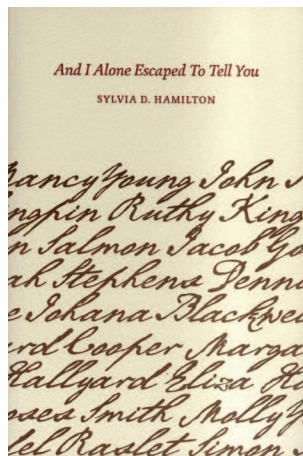 And I Alone Escaped To Tell You
SYLVIA D. HAMILTON
ancy Young John
ngfin Ruthy King
n Salmon Jacob Go
ah Stephens Denn
e Johana Blackwe
rd Cooper Marga
Hallyard Eliza H
oses Smith Molly Y
el Raslet Simon